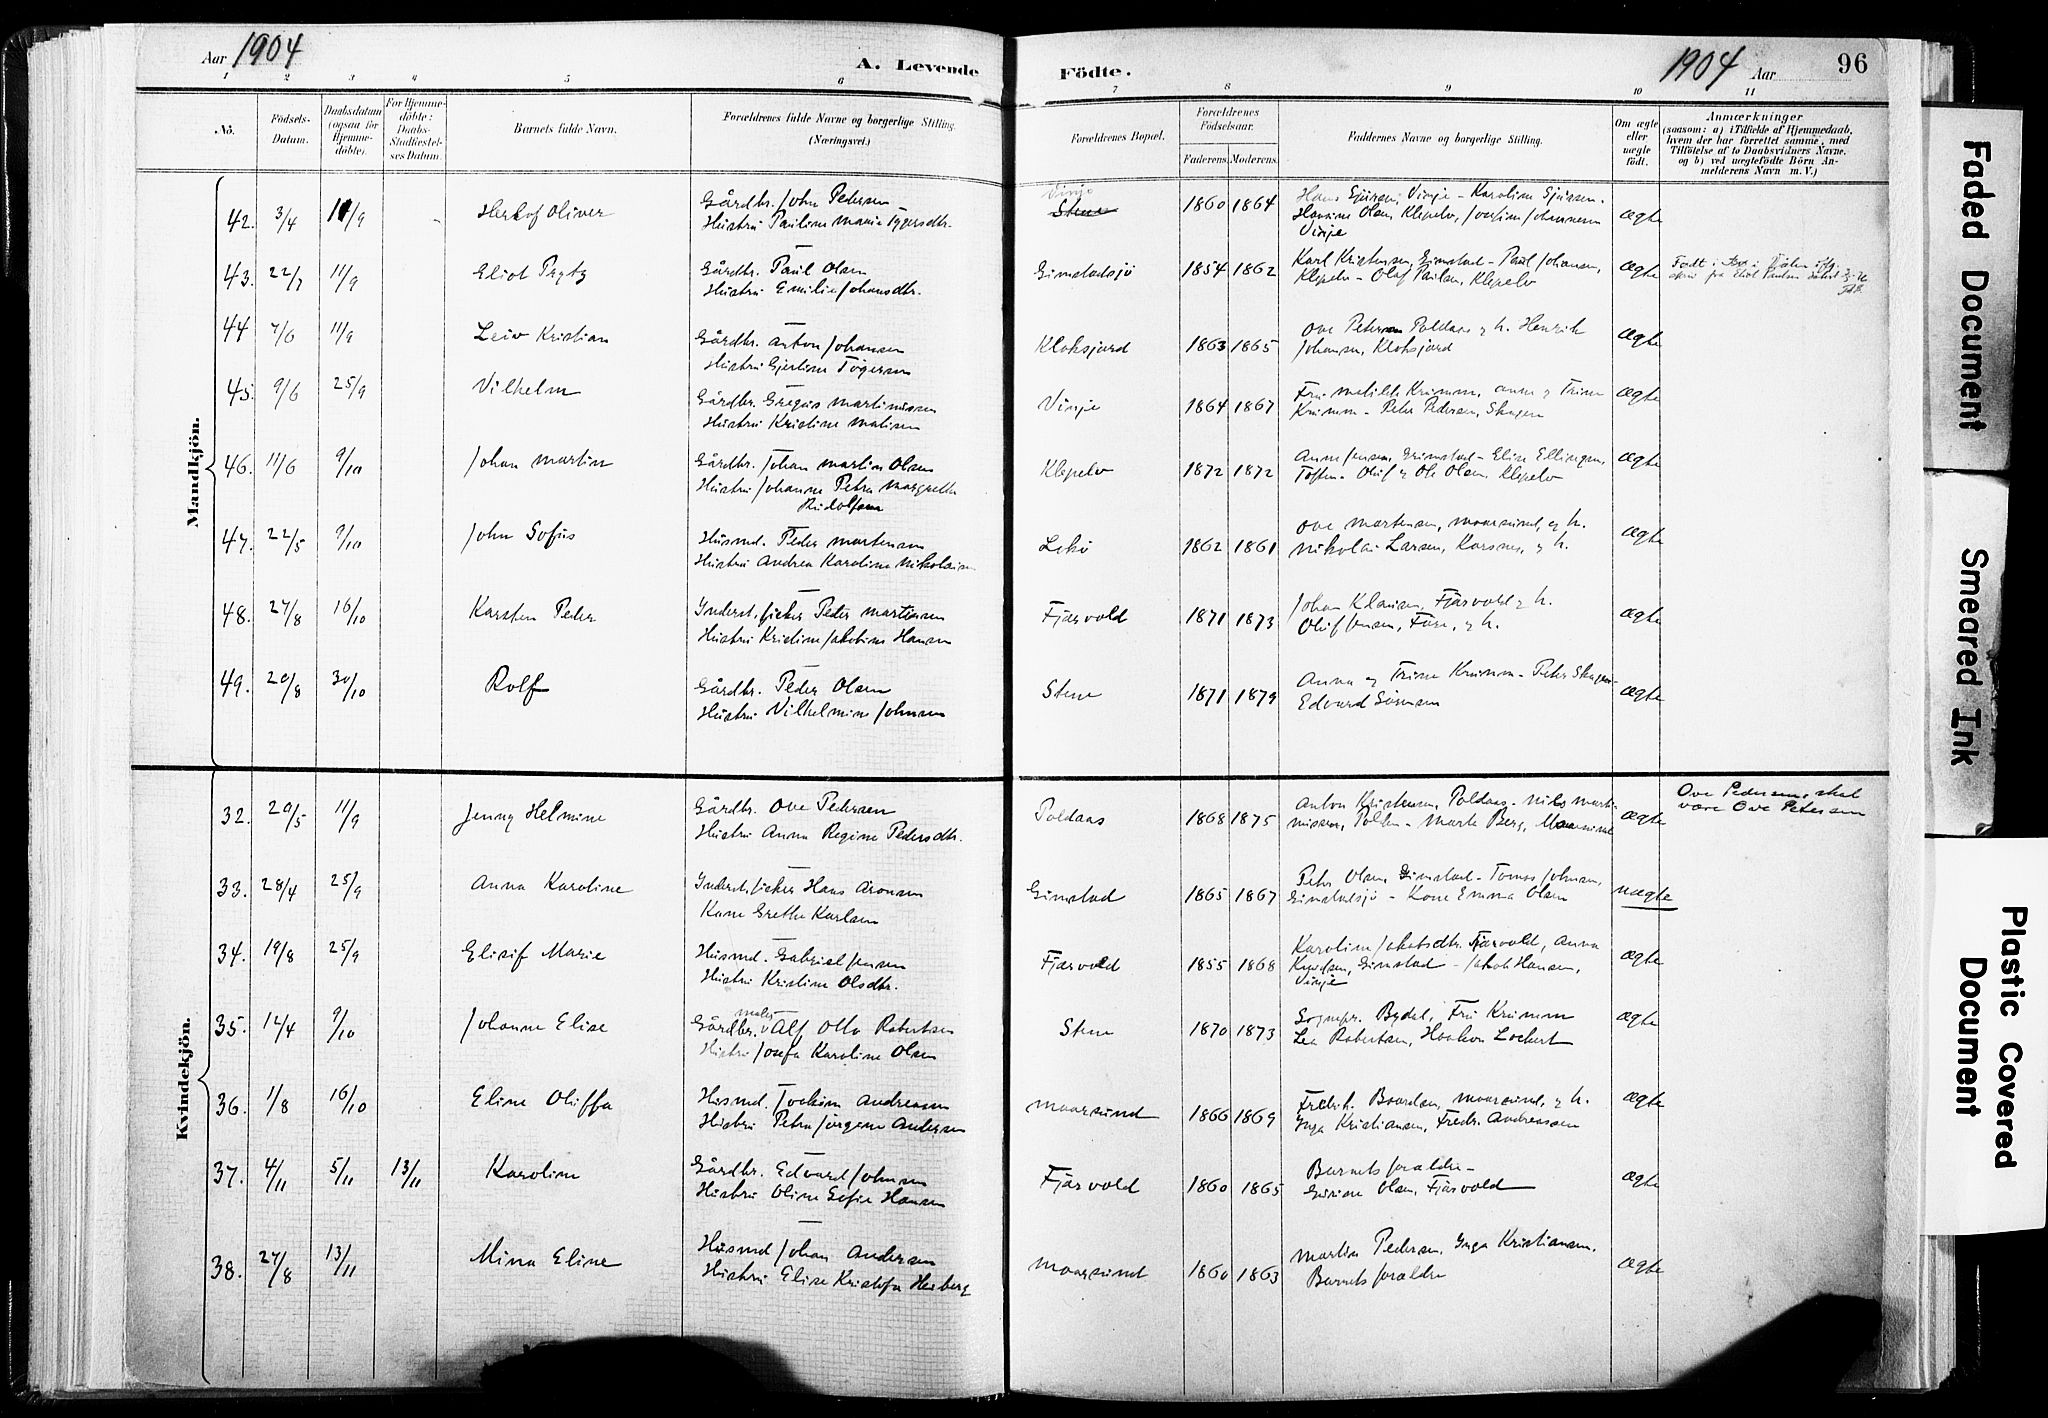 Aar 1904
A. Levende Födte.
1904 Aar 96
1 2 3 4 5 6 7 8 9 10 11
Nô. Födsels-Datum. Daabsdatum (ogsaa for Hjemmedöbte). For Hjemmedöbte: Daabs-Stadfæstelses Datum. Barnets fulde Navn. Forældrenes fulde Navne og borgerlige Stilling. (Næringsvei.) Forældrenes Bopæl. Forældrenes Födselsaar. Faderens. Moderens. Faddernes Navne og borgerlige Stilling. Om ægte eller uægte födt. Anmærkninger (saasom: a) i Tilfælde af Hjemmedaab, hvem der har forrettet samme, med Tilföielse af to Daabsvidners Navne, og b) ved uægtefödte Börn Anmelderens Navn m. V.)
Mandkjön.
42. 3/4 11/9 Oliver Gårdbr. John Pedersen Vinje 1860 1864 Vinje - Karoline ægte
Hustru Pauline Marie Stene Hansine Olsen, Klepelv,
Vinje
43. 22/7 11/9 Eliot Prytz Gårdbr. Paul Olsen Gimstadsjö 1854 1862 Karl Kristensen, Gimstad - Paul Johansen, ægte
Hustru Emilie Johansdtr. Klepelv - Oluf Paulsen, Klepelv
44 7/6 11/9 Leiv Kristian Gårdbr. Anton Johansen Kloksjord 1863 1865 Ove Petersen Poldaas & h. Henrik ægte
Hustru Gjertine Tögersen Johansen, Kloksjord
45. 9/6 25/9 Vilhelm Gårdbr. Gregus Martinussen Vinje 1864 1867 Fru Matilde Krumm, Anna & Trine ægte
Hustru Kristine Krumm - Peter Pedersen, Skagen
46. 11/6 9/10 Johan Martin Gårdbr. Johan Martin Olsen Klepelv 1872 1872 Anne Jensen, Grimstad - Elise Ellingsen, ægte
Hustru Johanne Petra Margrethe Toften - Oluf & Ole Olsen, Klepelv
Rudolfsen
47. 22/5 9/10 John Sofus Husmd. Peder Martensen Lekö 1862 1861 Ove Martensen, Maarsund, & h. ægte
Hustru Andrea Karoline Nikolaisen Nikolai Larsen, Karsnes, & h.
48. 27/8 16/10 Karsten Peder Inderst, fisker Peder Martinsen Fjærvold 1871 1873 Johan Klausen, Fjærvold & h. ægte
Hustru Kristine Jakobine Hansen Oluf Jensen, & h.
49. 20/8 30/10 Rolf Gårdbr. Peder Olsen Stene 1871 1879 Anna og Trine Krumm - Peter Skagen ægte
Hustru Vilhelmine Johnsen Edvard Sörensen
Kvindekjön.
32. 29/5 11/9 Jenny Helmine Gårdbr. Ove Pedersen Poldaas 1868 1875 Anton Kristensen, Poldaas - Nils Marti- ægte Ove Pedersen, skal
Hustru Anna Regine Pedersdtr. nissen, Polden - Marte Berg, Maarsund være Ove Petersen
33. 28/4 25/9 Anna Karoline Inderst, fisker Hans Aronsen Gimstad 1865 1867 Peter Olsen Gimstad - Tomas Johnsen, uægte
Kone Grethe Karlsen Gimstadsjö - Kone Emma Olsen
34. 19/8 25/9 Elisif Marie Husmd. Gabriel Jensen Fjærvold 1855 1868 Karoline Jakobsdtr. Fjærvold, Anna ægte
Hustru Kristine Olsdtr. Knudsen, Gimstad - Jakob Hansen,
Vinje
35. 12/4 9/10 Johanne Elise Gårdbr. & maler Alf Otto Robertsen Stene 1870 1873 Sognepr. Bydal, Fru Krumm ægte
Hustru Josefa Karoline Olsen Lea Robertsen, Haakon Lockert
36. 1/8 16/10 Eline Oluffa Husmd. Joakim Andreasen Maarsund 1866 1869 Fredrik Baardsen, Maarsund, & h. ægte
Hustru Petra Jörgine Andersen Inga Kristiansen, Fredr. Andreassen
37. 4/11 5/11 13/11 Karoline Gårdbr. Edvard Johnsen Fjærvold 1860 1865 Barnets forældre - ægte
Hustru Oline Sofie Hansen Olsen, Fjærvold
38. 27/8 13/11 Mina Eline Husmd Johan Andersen Maarsund 1860 1863 Martin Pedersen, Inga Kristiansen. ægte
Hustru Elise Kristofa Heiberg Barnets forældre
Faded Document
Smeared Ink
Plastic Covered Document